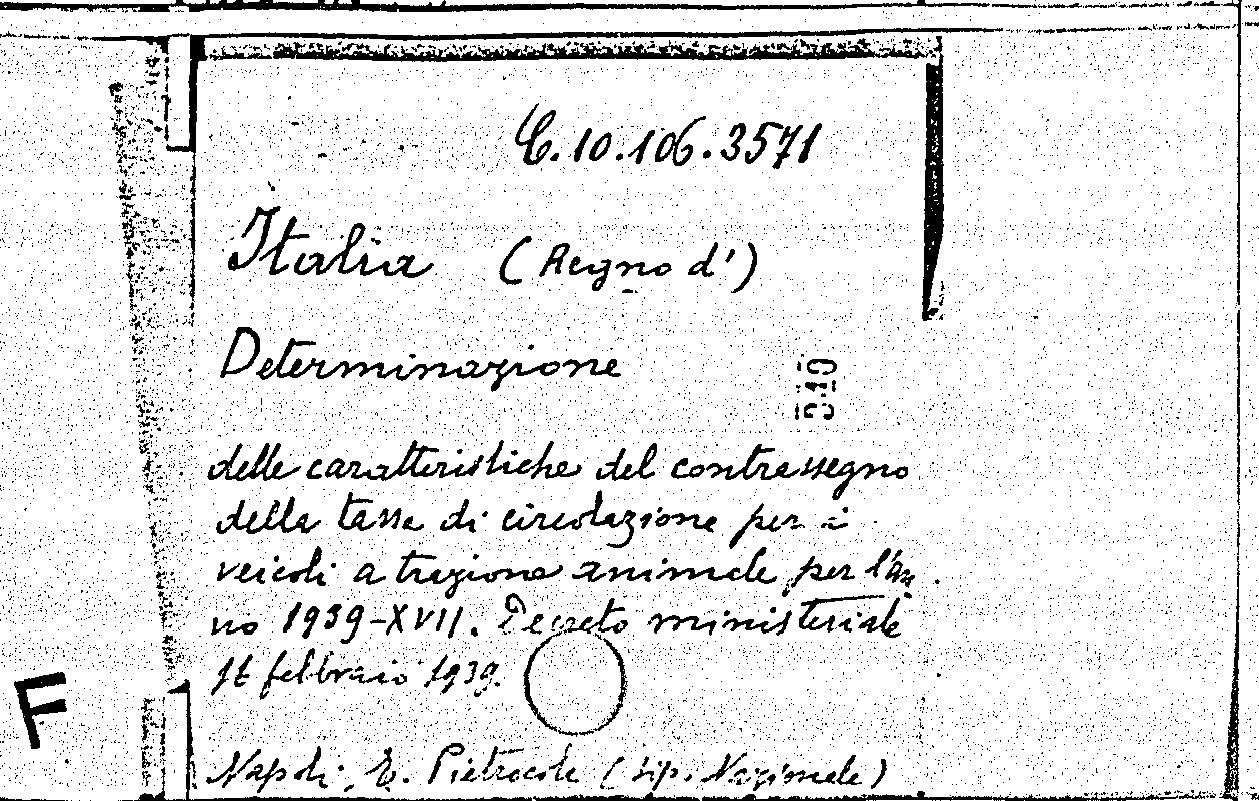 C.10.106.3571
Italia (Regno d')
Determinazione
delle caratteristiche del contrassegno
della tassa di circolazione per i
veicoli a trazione animale per l'an
no 1939-XVII. Decreto ministeriale
febbraio 1939.
Napoli, E. Pietrocola (tip. Nazionale)
F